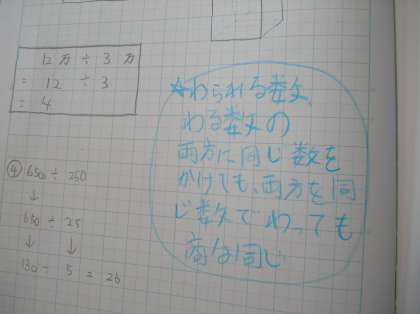 12万÷3万
= 12 ÷3
= 4
④ 6500÷250
↓
650÷25
↓ ↓
130÷ 5 = 26
☆わられる数、
わる数の
両方に同じ数を
かけても、両方を同
じ数でわっても
商は同じ